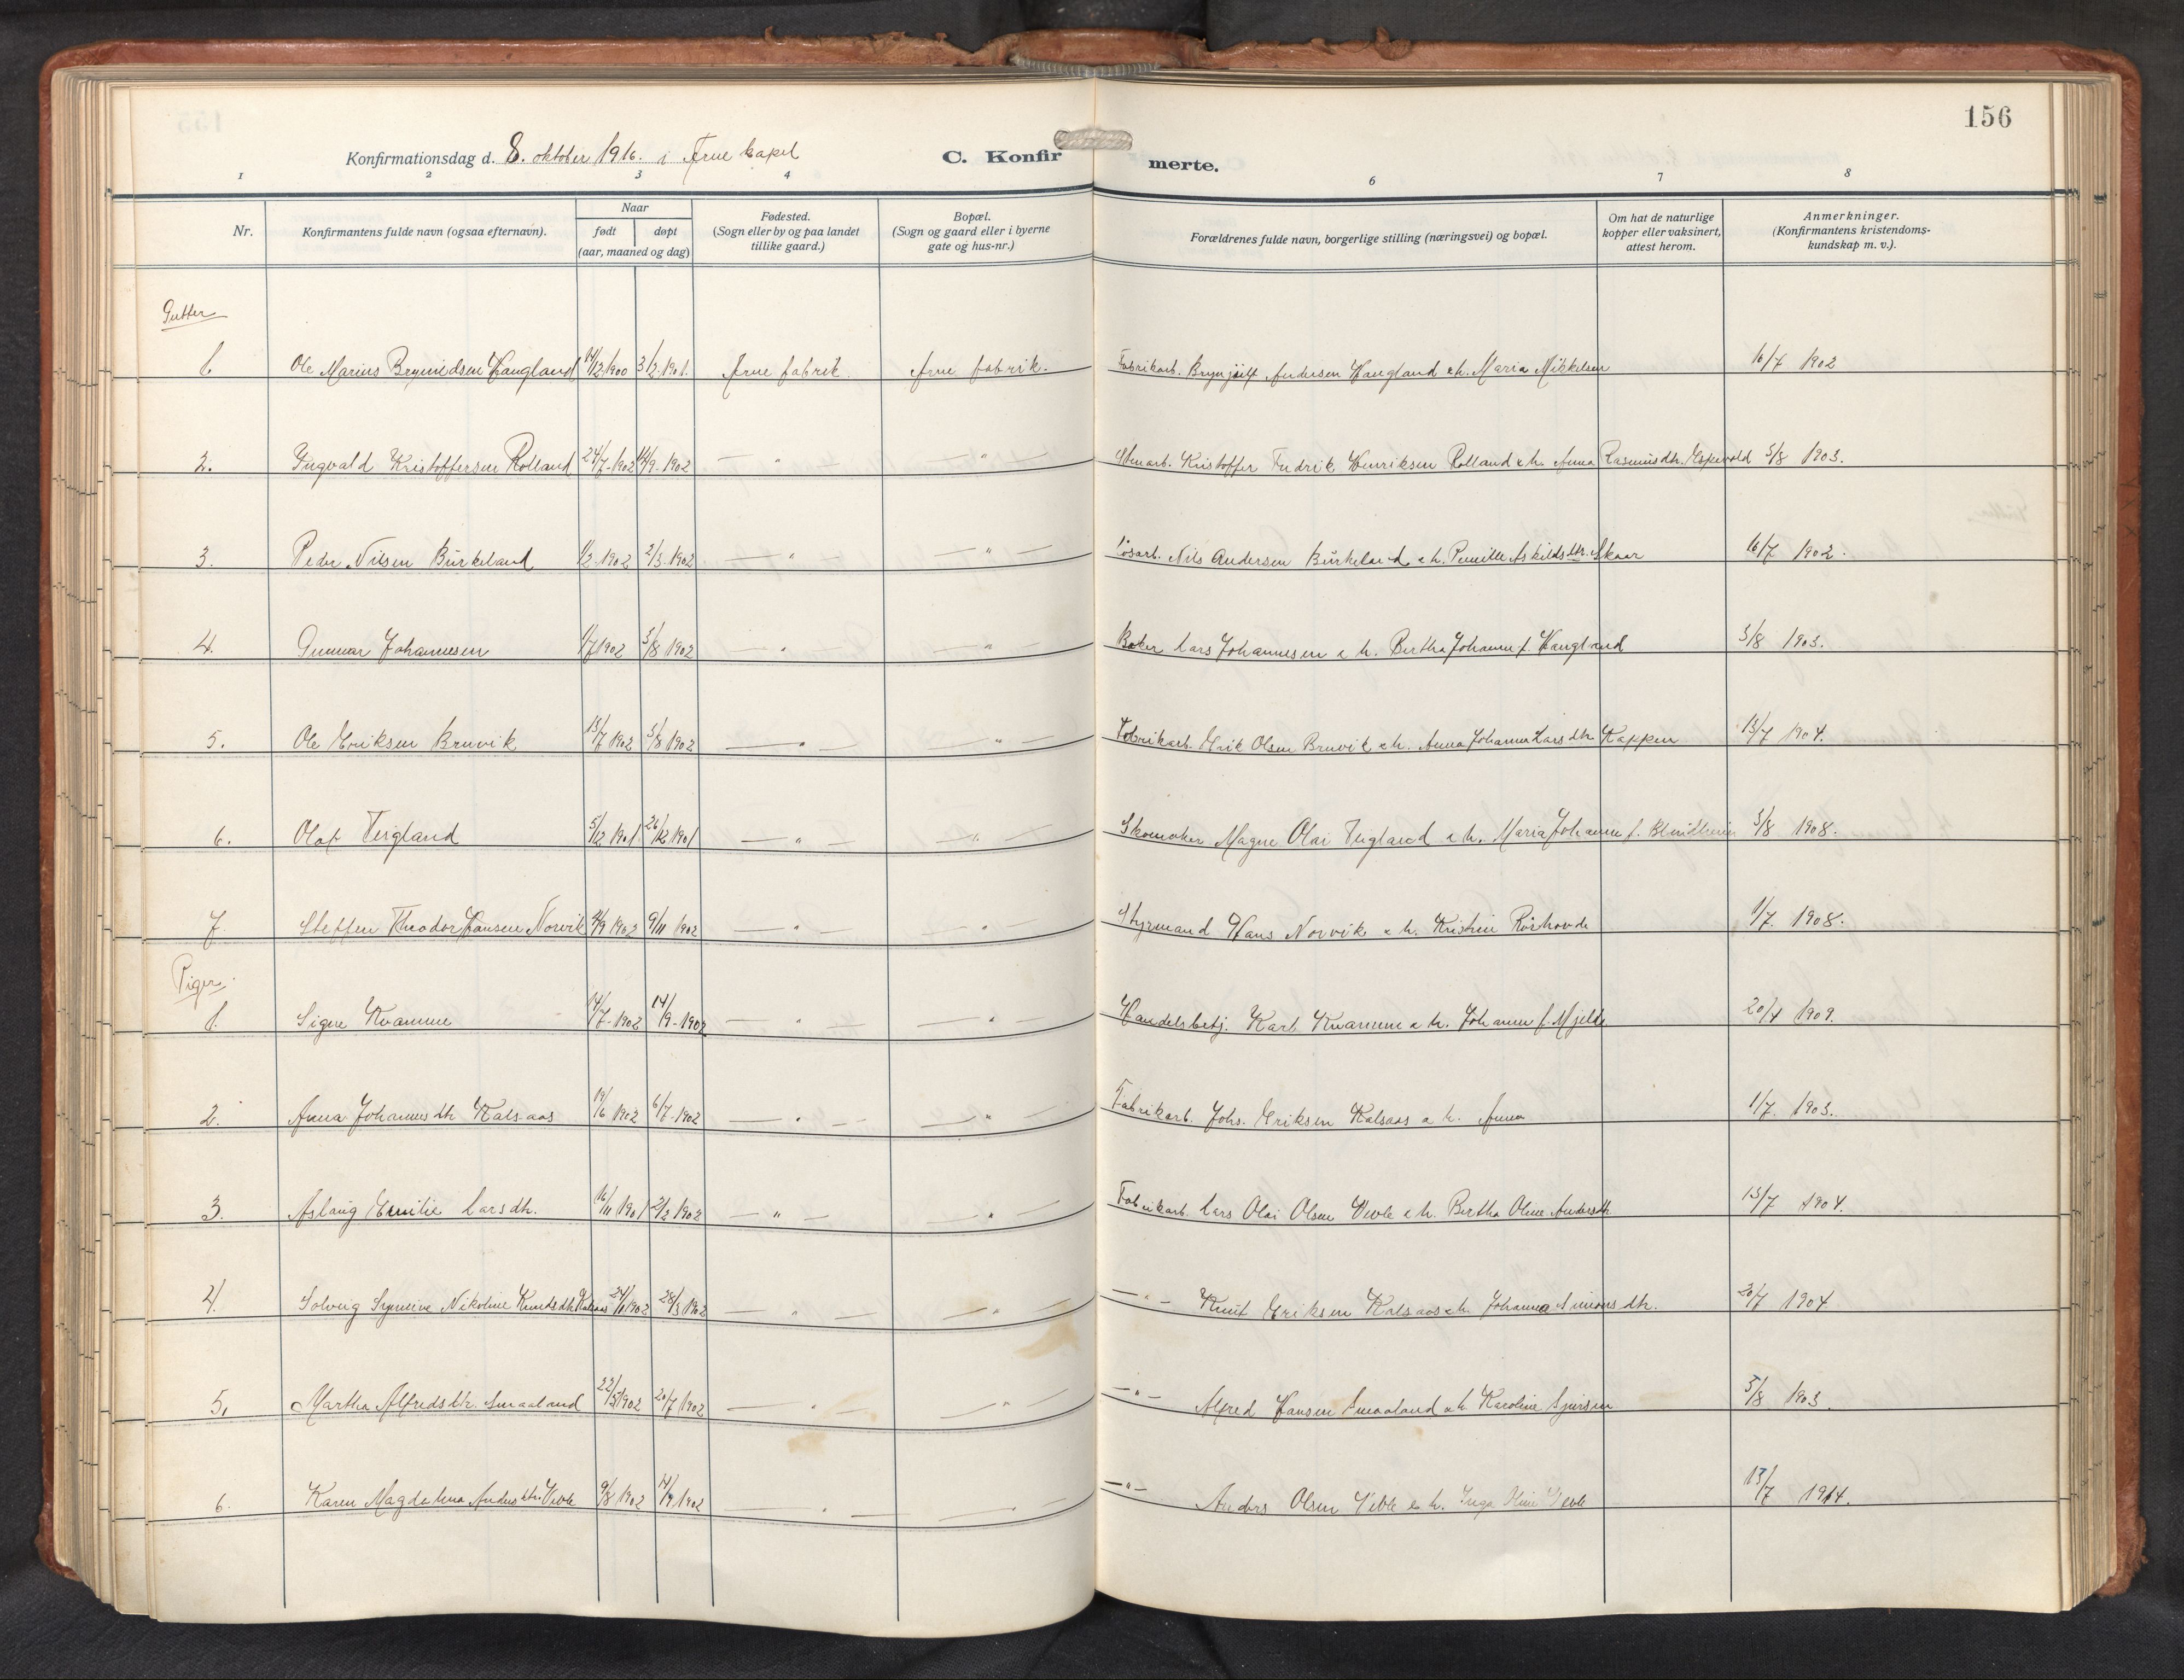 156
Konfirmationsdag d. 8. oktober 1916. i Arne kapel
C. Konfirmerte.
1 2 3 4 6 7 8
Nr. Konfirmantens fulde navn (ogsaa efternavn). Naar født døpt (aar, maaned og dag) Fødested. (Sogn eller by og paa landet tillike gaard.) Bopæl. (Sogn og gaard eller i byerne gate og hus-nr.) Forældrenes fulde navn, borgerlige stilling (næringsvei) og bopæl. Om hat de naturlige kopper eller vaksinert, attest herom. Anmerkninger. (Konfirmantens kristendomskundskap m. v.).
Gutter
1. Ole Marius Brynildsen Haugland 14/12 1900 3/2 1901. Arne fabrik. Arne fabrik. Fabrikarb. Brynjulf Andersen Haugland & h. Maria Mikkelsen 16/7 1902
2. Ingvald Kristoffersen Rolland 24/7 1902 14/9 1902 — " — — " — Kristoffer Fredrik Henriksen Rolland & h. Anna Rasmusdtr. Espevold 5/8 1903.
3. Peder Nilsen Birkeland 1/2 1902 2/3 1902 — " — — " — Løsarb. Nils Andersen Birkeland & h. Pernille Askildsdtr. Skaar 16/7 1902.
4. Gunnar Johannesen 1/7 1902 3/8 1902 — " — — " — Baker Lars Johannesen & h. Bertha Johanne f. Haugland 5/8 1903.
5. Ole Eriksen Bruvik 13/7 1902 3/8 1902 — " — — " — Fabrikarb. Erik Olsen Bruvik & h. Anna Johanne Larsdtr. Kappen 13/7 1904.
6. Olaf Teigland 5/12 1901 26/12 1901 — " — — " — Skomaker Magne Olai Teigland & h. Maria Johanne f. Blindheim 5/8 1908.
7. Steffen Theodor Hansen Norvik 4/9 1902 9/11 1902 — " — — " — Styrmand Hans Norvik & h. Kristine Rørhovde 1/7. 1908.
Piger.
1. Signe Kvamme 14/7 1902 14/9 1902 — " — — " — Handelsbetj. Karl Kvamme & h. Johanne f. Mjelde 20/4 1909.
2. Anna Johannesdtr. Kalsaas 19/6 1902 6/7 1902 — " — — " — Fabrikarb. Johs. Eriksen Kalsaas & h. Anna 1/7. 1903.
3. Aslaug Emilie Larsdtr. 16/11 1901 2/2 1902 — " — — " — Fabrikarb. Lars Olai Olsen Vevle & h. Bertha Oline Andersdtr. 13/7 1904.
4. Solveig Synneive Nikoline Knudsdtr. Kalsaas 24/1 1902 28/3 1902 — " — — " — — " — Knut Eriksen Kalsaas & h. Johanna Simonsdtr. 20/7 1904
5. Martha Alfredsdtr. Smaaland 22/5 1902 20/7 1902 — " — — " — — " — Alfred Hansen Smaaland & h. Karoline Sjursen 5/8 1903.
6. Karen Magdalena Andersdtr. Vevle 9/8 1902 14/9 1902 — " — — " — — " — Anders Olsen Vevle & h. Inga Vevle 13/7 1914.